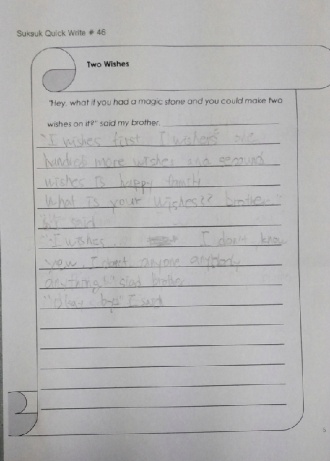 Sussuk Quick Write # 46
Two Wishes
"Hey, what if you had a magic stone and you could make two
wishes on it?" said my brother.
"I wishes first I wishes one
hundred more wishes and second
wishes is happy family
What is your wishes? brother"
said
"I wishes I don't know
you. I don't anyone anybody
anything" said
"Okay bye" I said